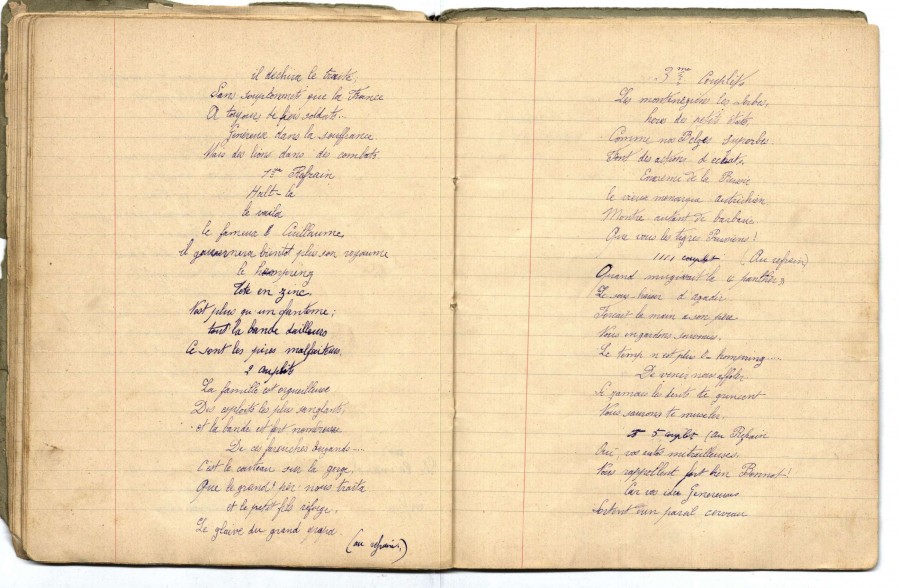 il déchira le traité,
Sans soupconnet que la France
A toujours de fiers soldats...
Genéreux dans la souffrance
Mais des lions dans des combats
1er Refrain
Halt-là
le voilà
le fameux Guillaume
il gouvernera bientot plus son royaume
le
Tete en zinc
N'est plus qu'un fantome;
tout la bande dailleurs
Ce sont les pires malfaiteurs.
2 couplets
La famille est orgueilleuse
Des exploits les plus sanglants,
et la bande est fort nombreuse
De ces farouches brigands.....
C'est le couteau sur la gorge,
Que le grand' nous traita
et le petit fils réforge,
Le glaive du grand papa.
(au refrain.)
3me Couplets
Les montenegrins les serbes,
heros de petits états
Comme nos Belges superbes
Font des actions d'eclats,
Ennemi de la Russie
le vieux monarque autrichien
Montre autant de barbarie
Que vous les tigres Prussiens!
1111 couplet (Au refrain)
Quand mugissait la "panther"
Le sous-marin d'agadir
Forcait la main a son père
Nous en gardons souvenir.
Le temp n'est plus
De venir nous affoler
Si jamais les dents te grincent
Nous saurons te museler.
5 couplet (au Refrain
Oui, vos autos mitrailleuses.
Nous rappellent fort bien Bonnot!
Car vos idées Genereuses
Sortent d'un pareil cerveau